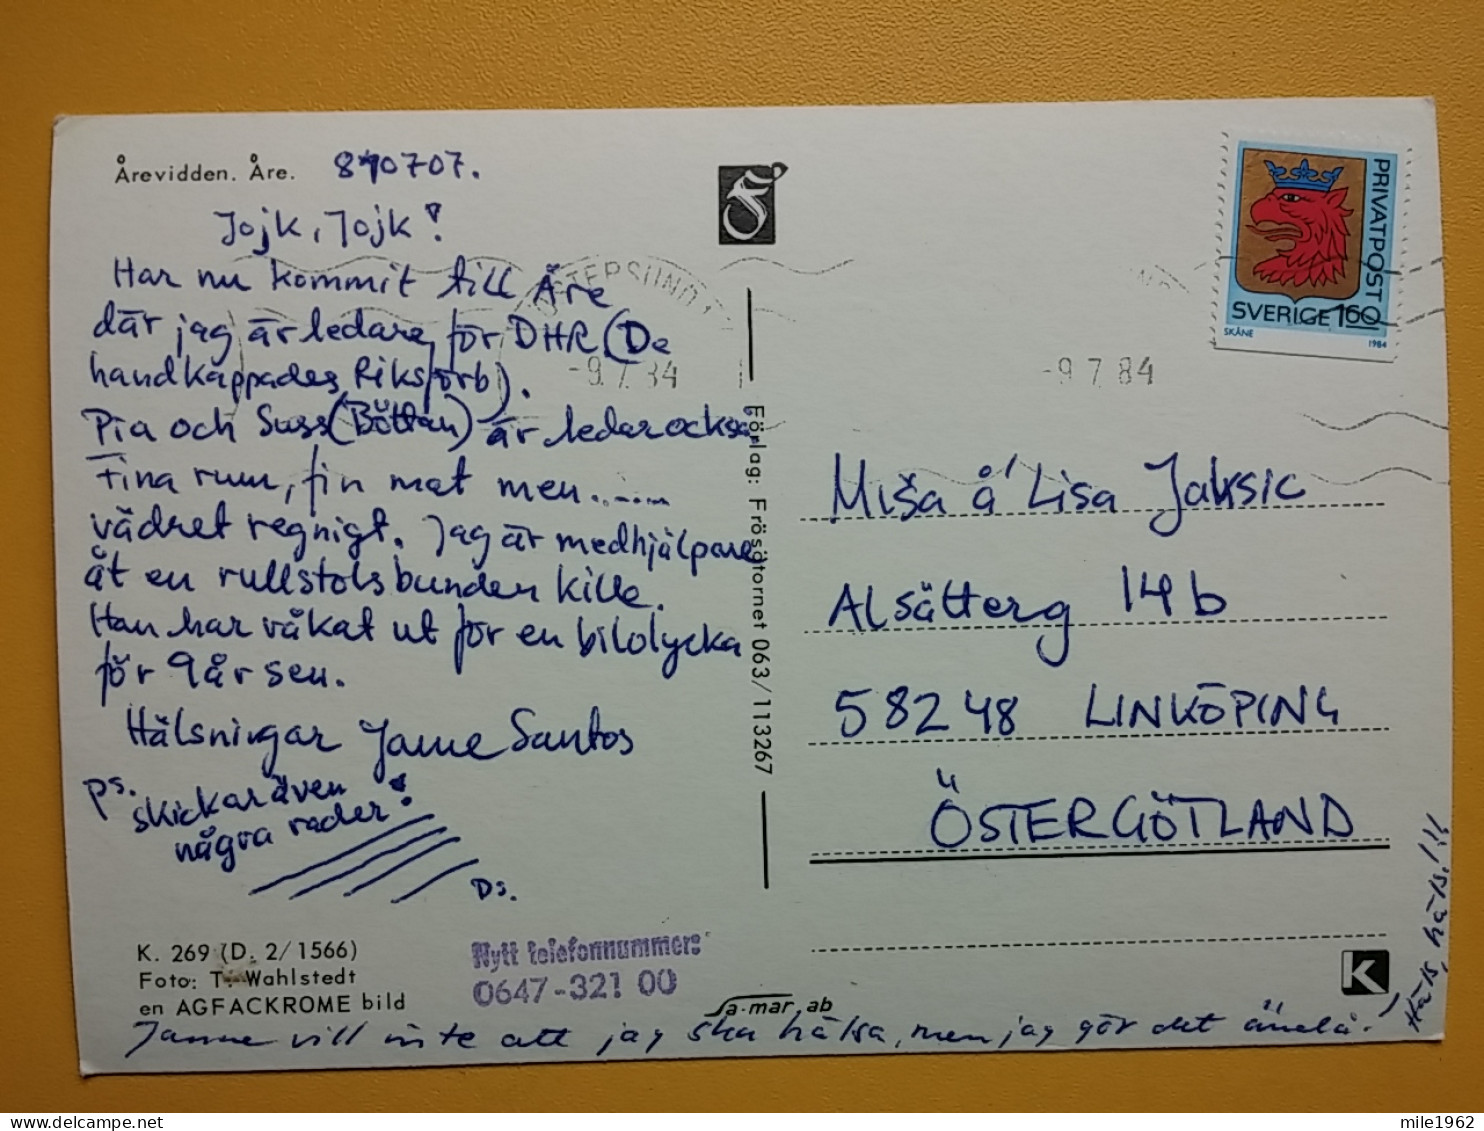 Årevidden. Åre. 840707.
Jojk, Jojk!
Har nu kommit till Åre
där jag är ledare för DHR (De
handkappades Riksförb).
Pia och Suss (Böttan) är ledar också.
Fina rum, fin mat men......
vädret regnigt. Jag är medhjälpare
åt en rullstolsbunden kille.
Han har våkat ut för en bilolycka
för 9 år sen.
Hälsningar Janne Santos
Ps. skickar även
några rader!
Ds.
K. 269 (D. 2/1566)
Foto: T. Wahlstedt
en AGFACKROME bild
Nytt telefonnummer:
0647-321 00
Sa-mar ab
Janne vill inte att jag ska hälsa, men jag gör det ändå!
Häls, häls!!!
Förlag: Frösötornet 063/113267
ÖSTERSUND
-9.7.84
-9.7.84
PRIVATPOST
SVERIGE 160
SKÅNE 1984
Miša å Lisa Jaksic
Alsätterg 14b
58248 LINKÖPING
ÖSTERGÖTLAND
K
mile1962